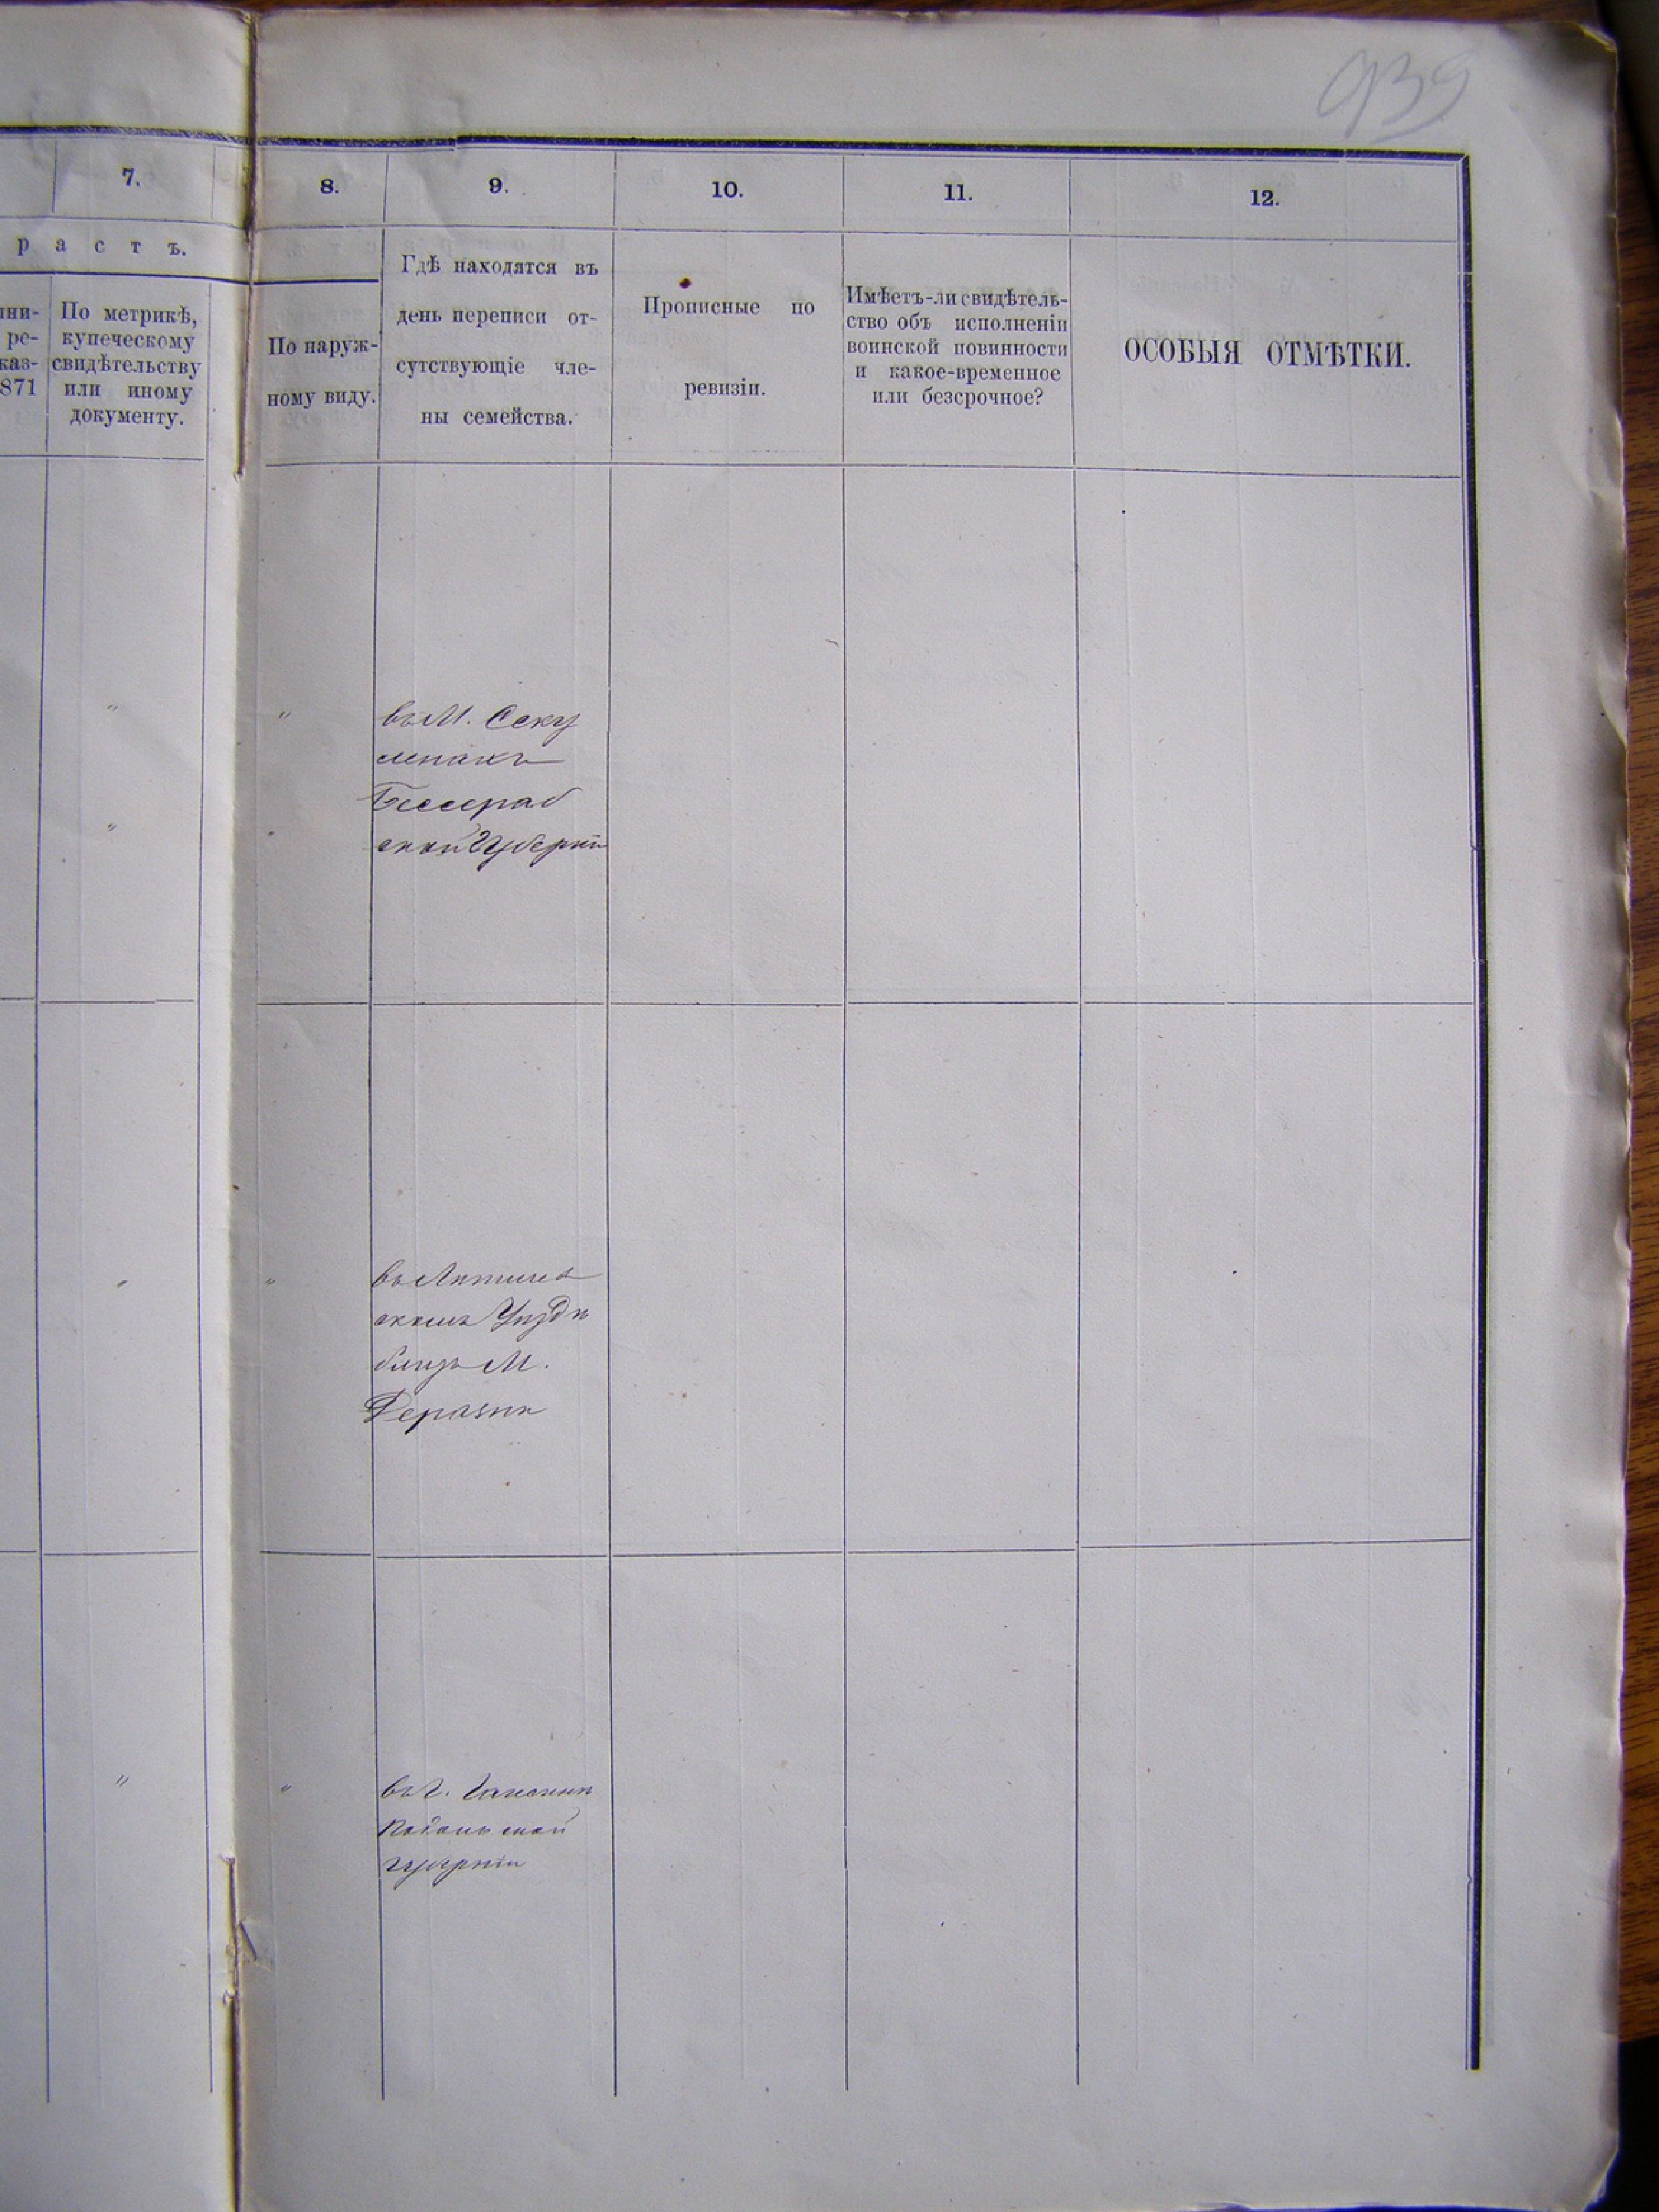 939
7.
8.
9.
10.
11.
12.
р а с т ъ.
ни-
ре-
каз-
871
По метрикѣ,
купеческому
свидѣтельству
или иному
документу.
По наруж-
ному виду.
Гдѣ находятся въ
день переписи от-
сутствующіе чле-
ны семейства.
Прописные по
ревизіи.
Имѣетъ-ли свидѣтель-
ство объ исполненіи
воинской повинности
и какое-временное
или безсрочное?
ОСОБЫЯ ОТМѢТКИ.
" " въ М. Секу
Бессараб
" ской Губерніи
" " въ Летичев
скомъ Уѣздѣ
близь М.
Деражни
" " въ Г. Гайсинѣ
Подольской
губерніи